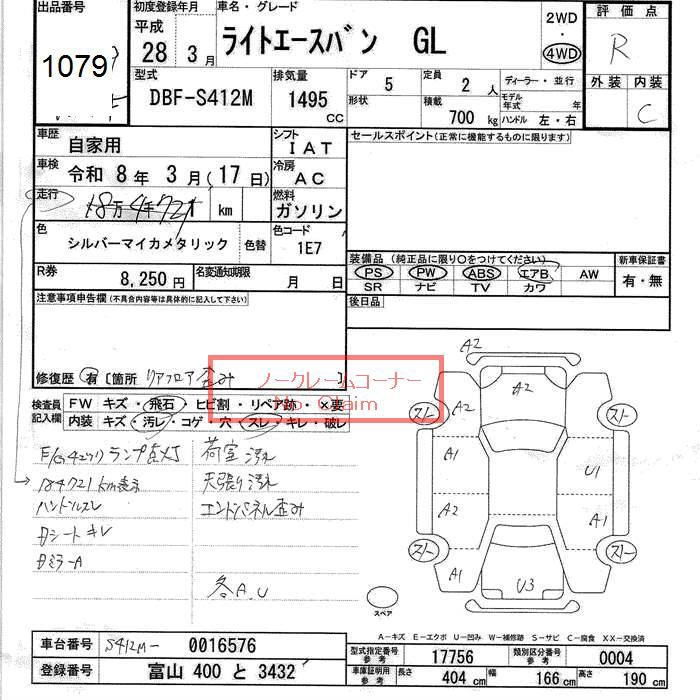 出品番号
1079
初度登録年月
平成
28年 3月
車名・グレード
ライトエースバン GL
2WD
・
4WD
評価点
R
型式
DBF-S412M
排気量
1495
CC
ドア
5
形状
定員
2人
積載
700kg
ディーラー・並行
モデル年式 年
ハンドル 左・右
外装
内装
C
車歴
自家用
シフト
IAT
セールスポイント(正常に機能するものに限ります)
車検
令和 8年 3月(17日)
冷房
AC
走行
km
燃料
ガソリン
色
シルバーマイカメタリック
色替
色コード
1E7
R券
8,250円
名変通知期限
月 日
装備品(純正品に限り○をつけてください)
PS PW ABS エアB AW
SR ナビ TV カワ
新車保証書
有・無
後日品
注意事項申告欄(不具合内容等は具体的に記入して下さい)
修復歴 有 [箇所 リアフロア歪み ]
ノークレームコーナー
No Claim
検査員記入欄
FW キズ・飛石・ヒビ割・リペア跡・×要
内装 キズ・汚レ・コゲ・穴・スレ・キレ・破レ
E/Gチェックランプ点灯
184721km表示
ハンドルスレ
荷室汚れ
天張り汚れ
エンドパネル歪み
各A.U
A2
A2
A2
A1
U1
A2
A1
A1
U3
スペア
A-キズ E-エクボ U-凹み W-補修跡 S-サビ C-腐食 XX-交換済
車台番号
S412M-
0016576
登録番号
富山 400 と 3432
型式指定番号
参考
17756
類別区分番号
参考
0004
車庫証明用
参考
長さ
404cm
幅
166cm
高さ
190cm